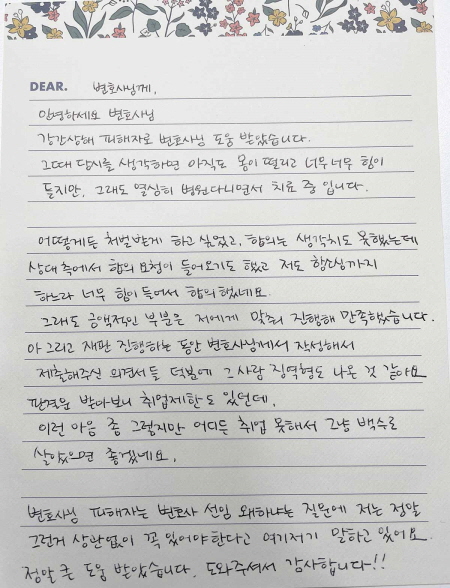 DEAR. 변호사님께,
안녕하세요 변호사님
강간상해 피해자로 변호사님 도움 받았습니다.
그때 당시를 생각하면 아직도 몸이 떨리고 너무너무 힘이
들지만, 그래도 열심히 병원다니면서 치료 중 입니다.
어떻게든 처벌받게 하고 싶었고, 합의는 생각치도 못했는데
상대 측에서 합의 요청이 들어오기도 했고 저도 항소심까지
하느라 너무 힘이 들어서 합의 했네요.
그래도 금액적인 부분은 저에게 맞춰 진행해 만족했습니다.
아 그리고 재판 진행하는 동안 변호사님께서 작성해서
제출해주신 의견서들 덕분에 그 사람 징역형도 나온 것 같아요
판결문 받아보니 취업제한도 있던데,
이런 마음 좀 그렇지만 어디든 취업 못해서 그냥 백수로
살았으면 좋겠네요.
변호사님 피해자는 변호사 선임 왜하냐는 질문에 저는 정말
그런거 상관없이 꼭 있어야한다고 여기저기 말하고 있어요.
정말 큰 도움 받았습니다. 도와주셔서 감사합니다!!